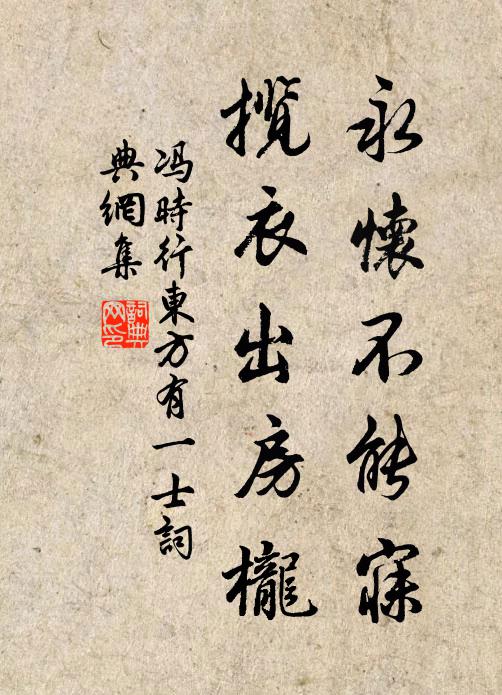 永懷不能寐
攬衣出房櫳
冯時行東方有一士詞
典網集
詞典
网印